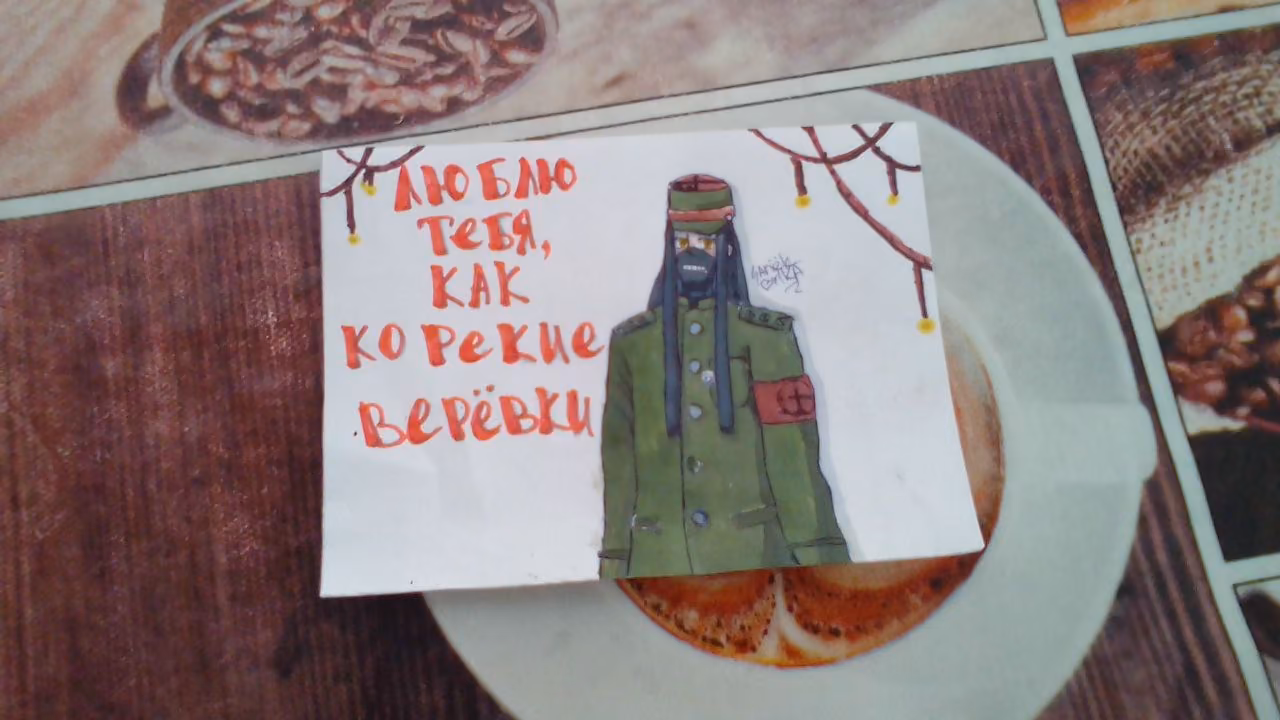 ЛЮБЛЮ
ТеБЯ,
КАК
КОРеКИе
ВеРЁВКИ